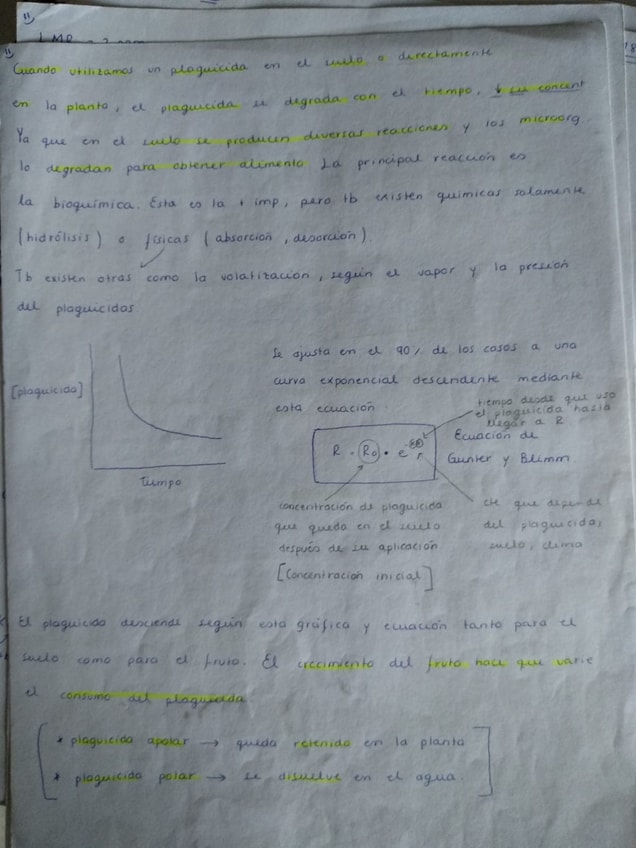 Cuando utilizamos un plaguicida en el suelo o directamente
en la planta, el plaguicida se degrada con el tiempo, ↓ su concent
Ya que en el suelo se producen diversas reacciones y los microorg.
lo degradan para obtener alimento La principal reacción es
la bioquímica. Esta es la + imp, pero tb existen químicas solamente
(hidrólisis) o físicas (absorción, desorción).
Tb existen otras como la volatización, según el vapor y la presión
del plaguicidas.
Se ajusta en el 90% de los casos a una
curva exponencial descendente mediante
esta ecuación
[plaguicida]
Tiempo
tiempo desde que uso
el plaguicida hasta
llegar a R
Ecuación de
Gunter y Blimm
concentración de plaguicida
que queda en el suelo
después de su aplicación
[Concentración inicial]
cte que depende
del plaguicida,
suelo, clima
El plaguicida desciende según esta gráfica y ecuación tanto para el
suelo como para el fruto. El crecimiento del fruto hace que varie
el consumo del plaguicida.
* plaguicida apolar → queda retenido en la planta
* plaguicida polar → se disuelve en el agua.